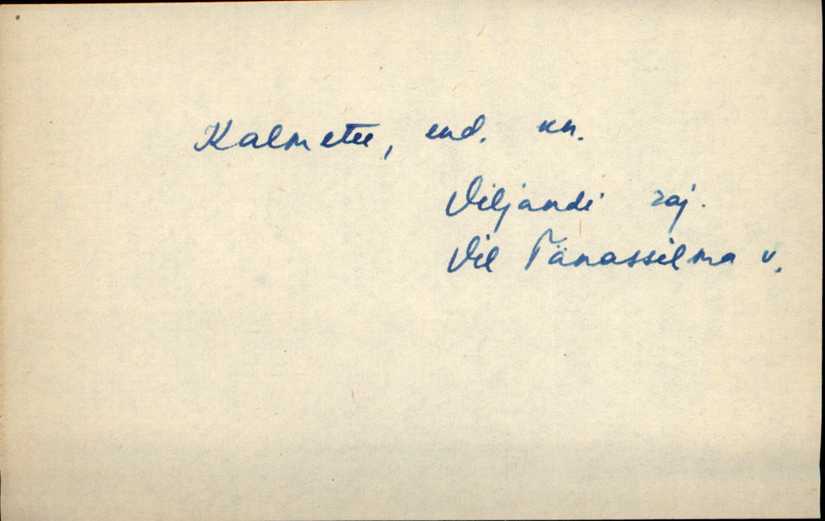 Kalmetu, end. kn.
Viljandi raj.
Vil Tänassilma v.